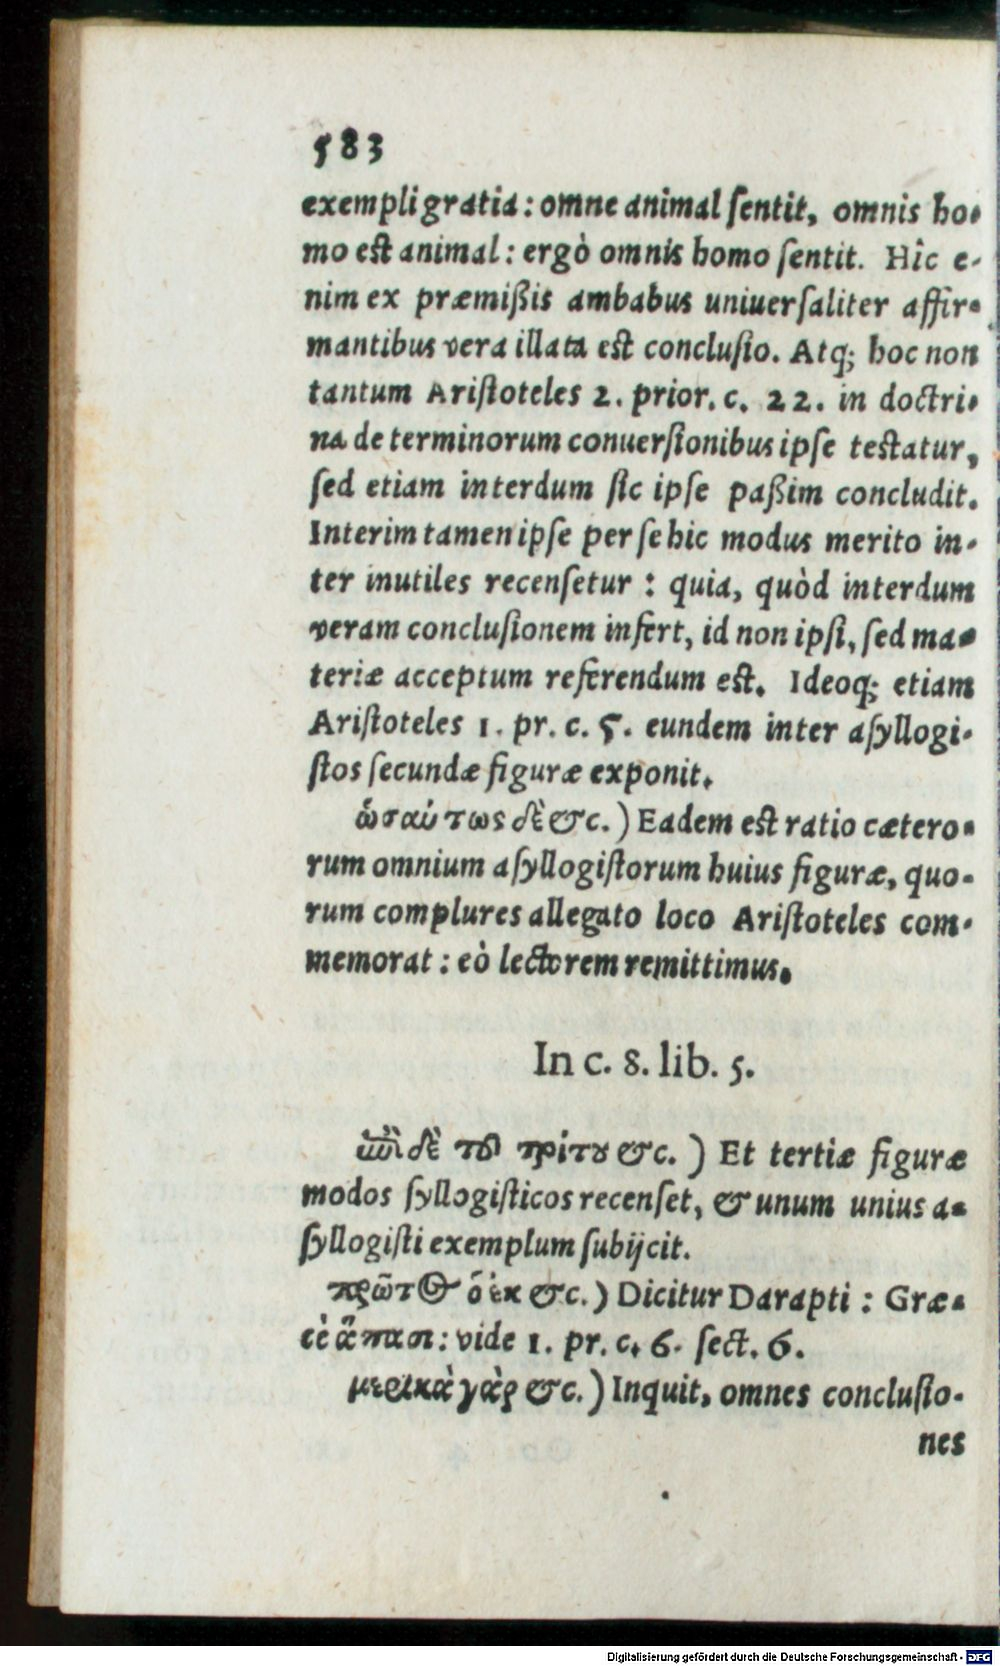 583
exempli gratia: omne animal ſentit, omnis ho-
mo est animal: ergò omnis homo ſentit. Hîc e-
nim ex præmißis ambabus uniuerſaliter affir-
mantibus vera illata est concluſio. Atq; hoc non
tantum Ariſtoteles 2. prior. c. 22. in doctri-
na de terminorum conuerſionibus ipſe testatur,
ſed etiam interdum ſic ipſe paßim concludit.
Interim tamen ipſe per ſe hic modus merito in-
ter inutiles recenſetur: quia, quòd interdum
veram concluſionem infert, id non ipſi, ſed ma-
teriæ acceptum referendum est. Ideoq; etiam
Ariſtoteles 1. pr. c. 5. eundem inter aſyllogi-
ſtos ſecundæ figuræ exponit.
ὡσαύτως δὲ &c.) Eadem est ratio cætero-
rum omnium aſyllogiſtorum huius figuræ, quo-
rum complures allegato loco Ariſtoteles com-
memorat: eò lectorem remittimus.
In c. 8. lib. 5.
ἐπὶ δὲ τοῦ τρίτου &c.) Et tertiæ figuræ
modos ſyllogiſticos recenſet, & unum unius a-
ſyllogiſti exemplum ſubijcit.
πρῶτος ὁ ἐκ &c.) Dicitur Darapti: Græ-
cè ἅπασι: vide 1. pr. c. 6. ſect. 6.
μερικὰ γὰρ &c.) Inquit, omnes concluſio-
nes
Digitalisierung gefördert durch die Deutsche Forschungsgemeinschaft - DFG